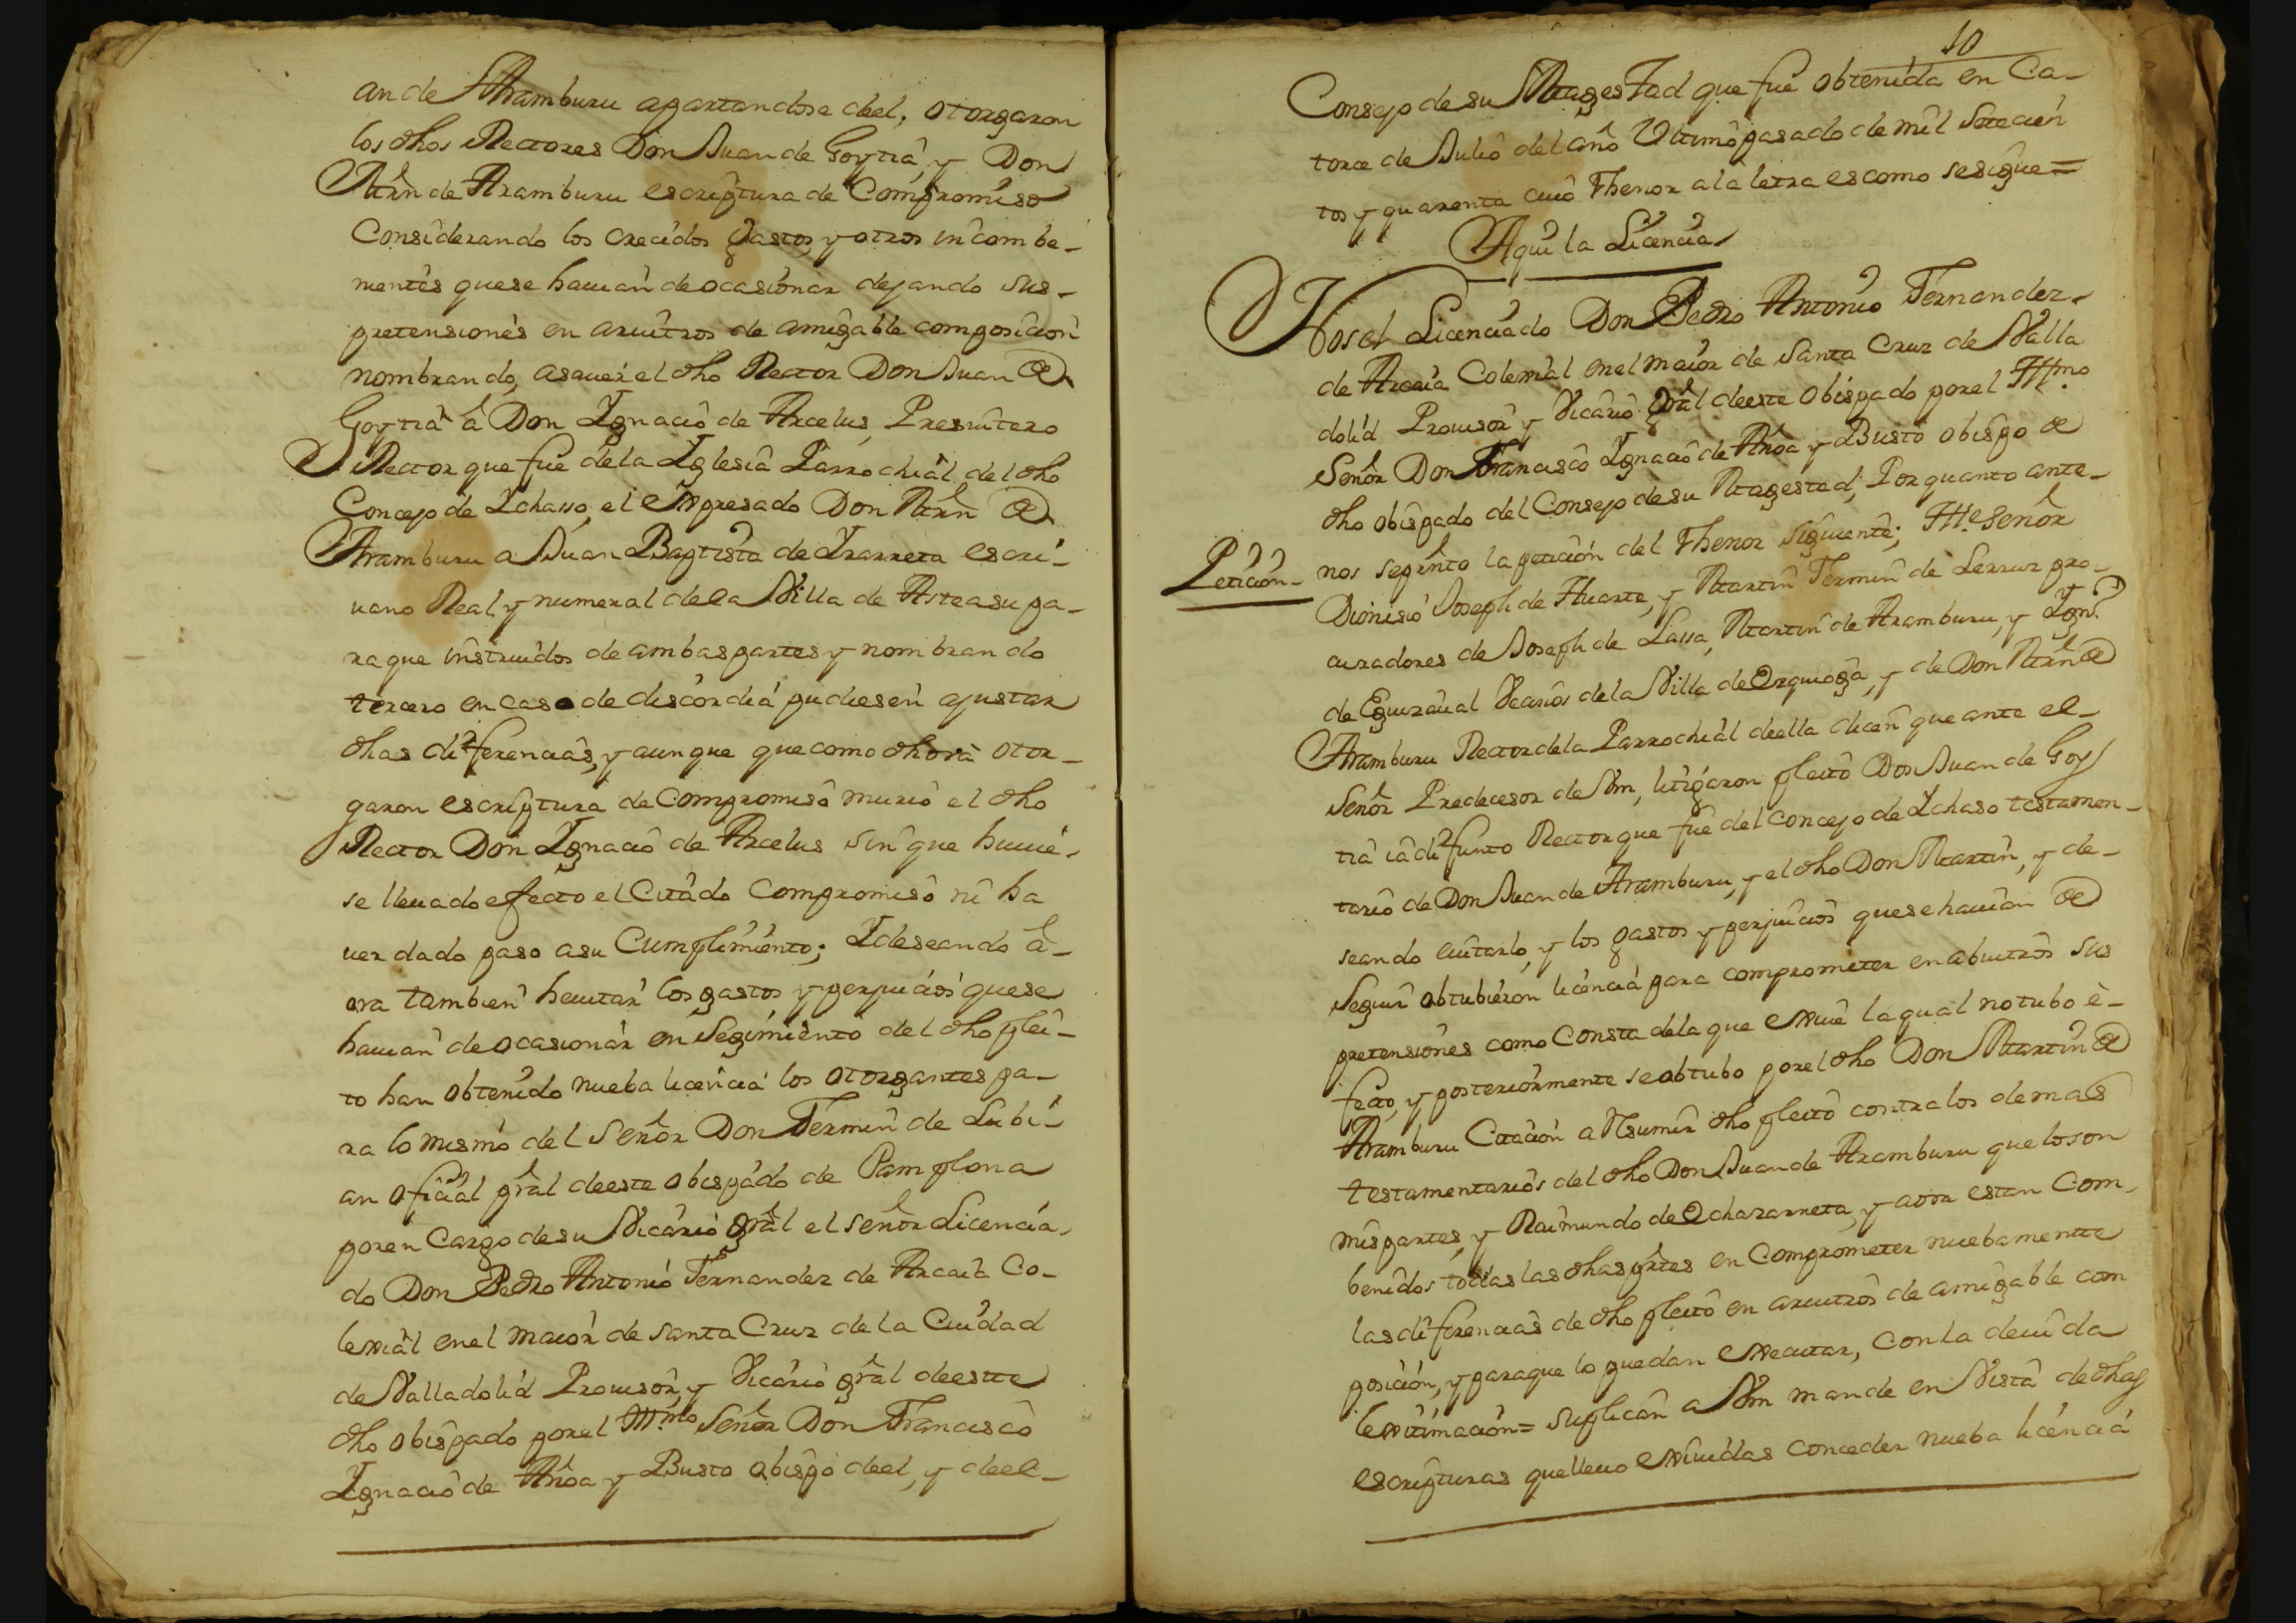 an de Aramburu apartandose del, otorgaron
los dhos Rectores Don Juan de Goytia y Don
Mrn de Aramburu escriptura de Compromiso
Considerando los crecidos gastos y otros incombe-
nientes que se hauian de ocasionar dejando sus-
pretensiones en aruitros de amigable composicion
nombrando, asauer el dho Rector Don Juan de
Goytia a Don Ygnacio de Arcelus, Presuitero
Rector que fue de la Yglesia Parrochial del dho
Concejo de Ychasso, el expresado Don Mrn de
Aramburu a Juan Baptista de Yrarreta escri-
uano Real y numeral de la Villa de Asteasu pa-
ra que instruidos de ambas partes y nombrando
tercero en caso de discordia pudiesen ajustar
dhas diferencias, y aunque que como dho va otor-
garon escriptura de Compromiso murio el dho
Rector Don Ygnacio de Arcelus sin que huuie-
se lleuado efecto el Citado Compromiso ni ha
uer dado paso a su Cumplimiento; Y deseando a-
ora tambien heuitar los gastos y perjuicios que se
hauian de ocasionar en Segimiento del dho plei-
to han obtenido nueba licencia los otorgantes pa-
ra lo mismo del Señor Don Fermin de Lubi-
an oficial gral de este obispado de Pamplona
por en Cargo de su Vicario gral el señor Licencia-
do Don Pedro Antonio Fernandez de Arcaia Co-
lexial en el maior de Santa Cruz de la Ciudad
de Valladolid Prouisor, y Vicario gral de este
dho obispado por el Illmo Señor Don Francisco
Ygnacio de Añoa y Busto obispo de el, y de el-
10
Consejo de su Magestad que fue obtenida en Ca-
torce de Julio del año Ultimo pasado de mil Setecien
tos y quarenta cuio Thenor a la letra es como se sigue=
Aqui la Licencia
Nos el Licenciado Don Pedro Antonio Fernandez
de Arcaia Colexial en el maior de Santa Cruz de Valla
dolid Prouisor y Vicario gral de este obispado por el Illmo
Señor Don Francisco Ygnacio de Añoa y Busto obispo de
dho obispado del Consejo de su Magestad, Por quanto ante-
Peticion- nos se pnto la peticion del Thenor siguiente; Ille Señor
Dionisio Joseph de Huarte, y Martin Fermin de Lerruz pro-
curadores de Joseph de Lassa, Martin de Aramburu, y Ygno
de Eguzaual Vecinos de la Villa de Ezquioga, y de Don Mrn de
Aramburu Rector de la Parrochial de ella dicen que ante el-
Señor Predecesor de Vm, litigaron pleito Don Juan de Goy
tia ia difunto Rector que fue del Concejo de Ychaso testamen-
tario de Don Juan de Aramburu, y el dho Don Martin, y de-
seando euitarlo, y los gastos y perjuicios que se hauian de
Seguir obtubieron licencia para comprometer en abuitros sus
pretensiones como Consta de la que exiue la qual no tubo e-
fecto, y posteriormente se obtubo por el dho Don Martin de
Aramburu Citacion a Rsumir dho pleito contra los demas
testamentarios del dho Don Juan de Aramburu que lo son
mis partes, y Raimundo de Echazarreta, y aora estan Com-
benidos todas las dhas ptes en Comprometer nuebamentte
las diferencias de dho pleito en aruitros de amigable com
posicion, y para que lo puedan executar, con la deuida
lexitimacion= suplican a Vm mande en Vista de dhas
escripturas que lleuo exiuidas conceder nueba licencia